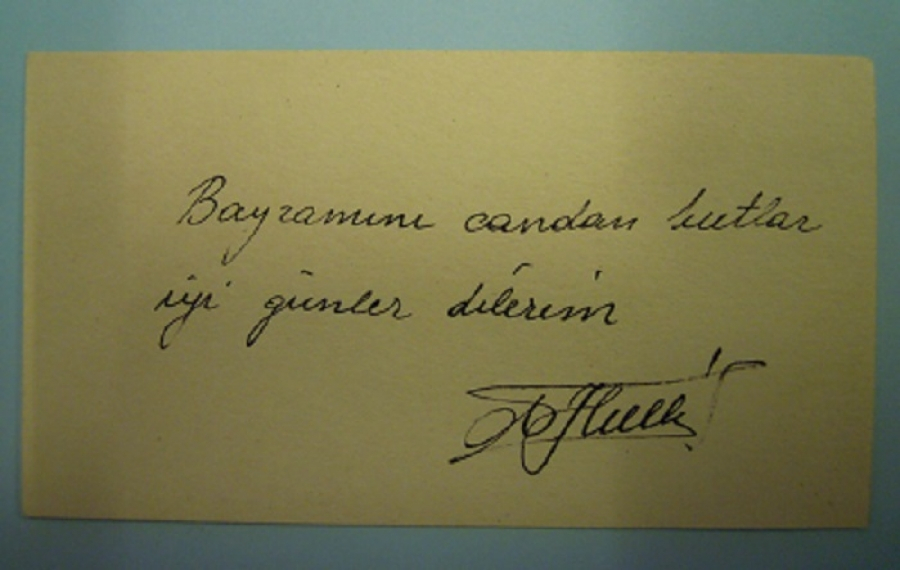 Bayramını candan kutlar
iyi günler dilerim